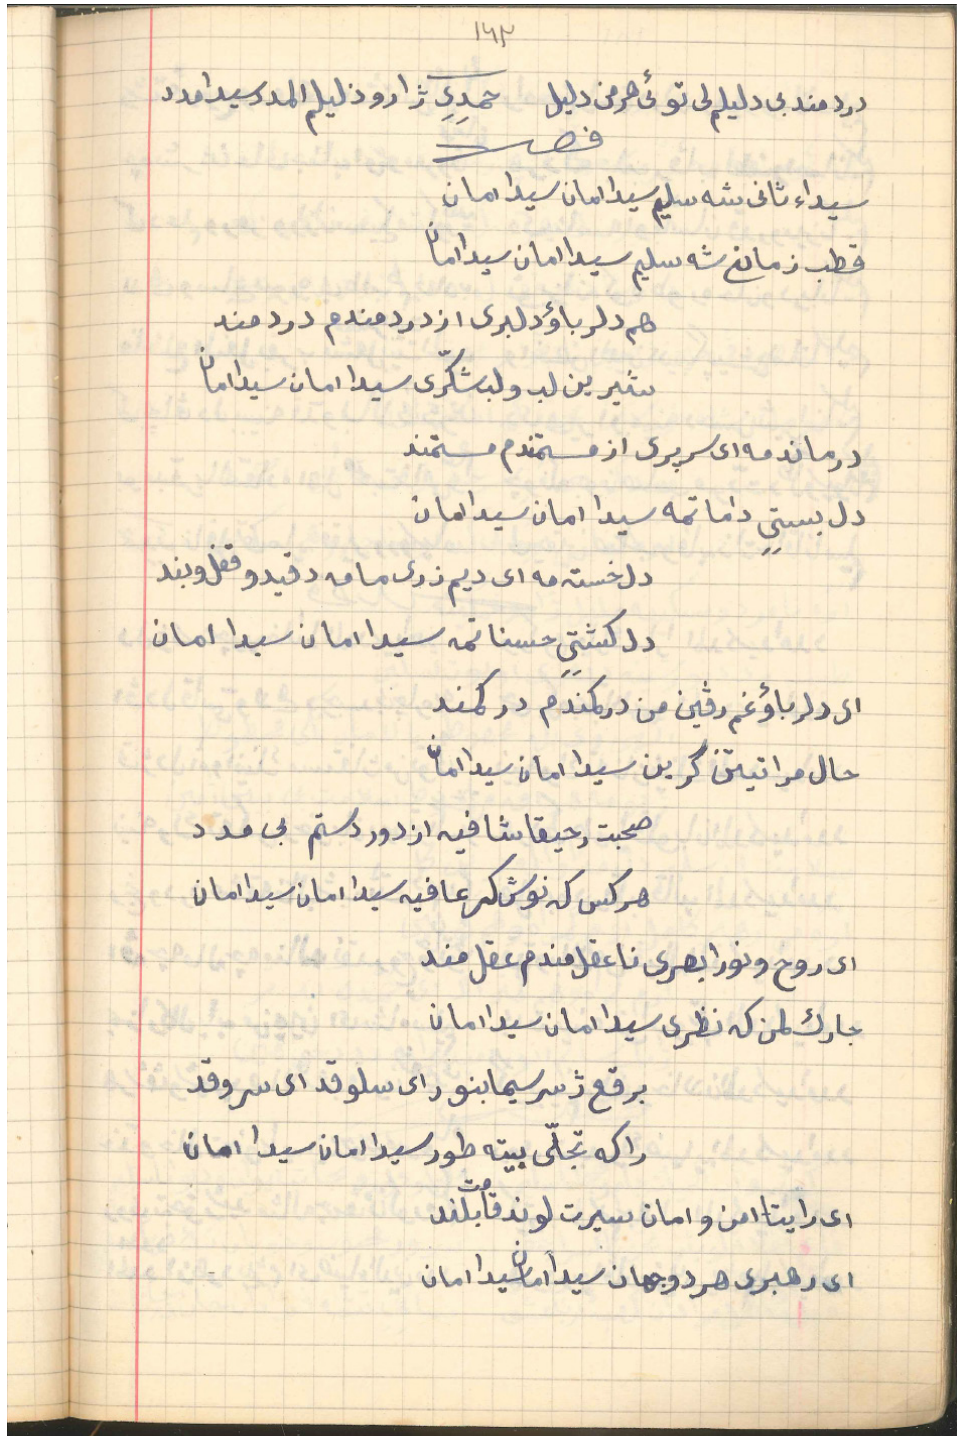 ١٤٣
دردمند بی دلیلم لی توئی هر من دلیل حمدیِ ژارو ذلیلم المدد سیدا مدد
سیداء ثانی شه سلیم سیدا امان سیدا امان
قطب زمانی شه سلیم سیدا امان سیدا امان
هم دلرباؤ دلبری از دردمندم دردمند
شیرین لب ولب شکّری سیدا امان سیدا امان
درمانده مه ای سرپری از مستمندم مستمند
دل بستیِ داما ته مه سیدا امان سیدا امان
دل خسته مه ای دیم زری مامه د قید و قفل و بند
دل کشتیِ حسنا ته مه سیدا امان سیدا امان
ای دلرباؤ غم رڤین من در کمندم در کمند
حال مرا تیتن گرین سیدا امان سیدا امان
صحبت رحیقا شافیه از دور دستم بی مدد
هر کس که نوش کر عافیه سیدا امان سیدا امان
ای روح و نورا بصری نا عقل مندم عقل مند
جارك لمن که نظری سیدا امان سیدا امان
برقع ژ سر سیما بنور ای سلو قد ای سرو قد
راکه تجلّی بیته طور سیدا امان سیدا امان
ای رایتا امن و امان سیرت لوند قامت بلند
ای رهبری هر دو جهان سیدا امان سیدا امان